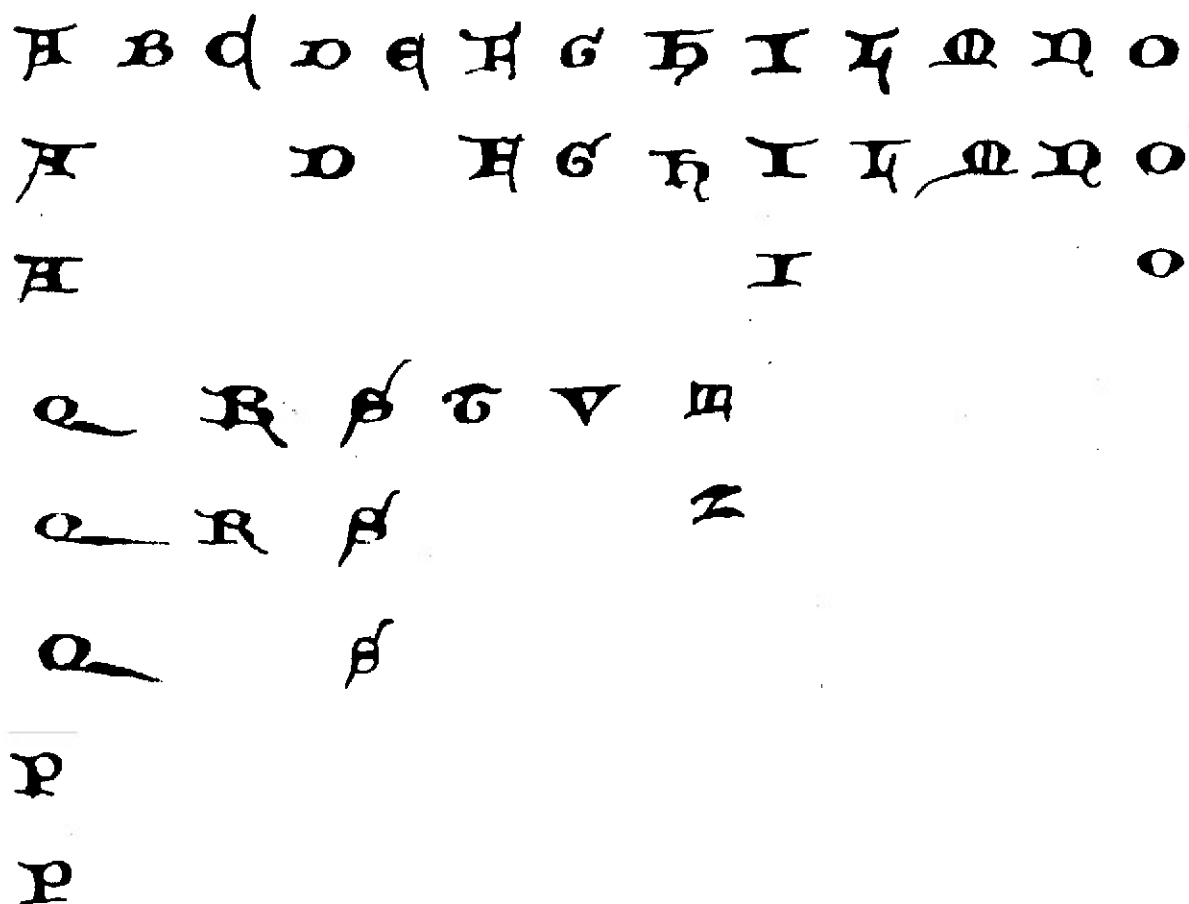 A B C D E F G H I L M N O
A D F G H I L M N O
A I O
Q R S T V
Q R S Z
Q S
P
P